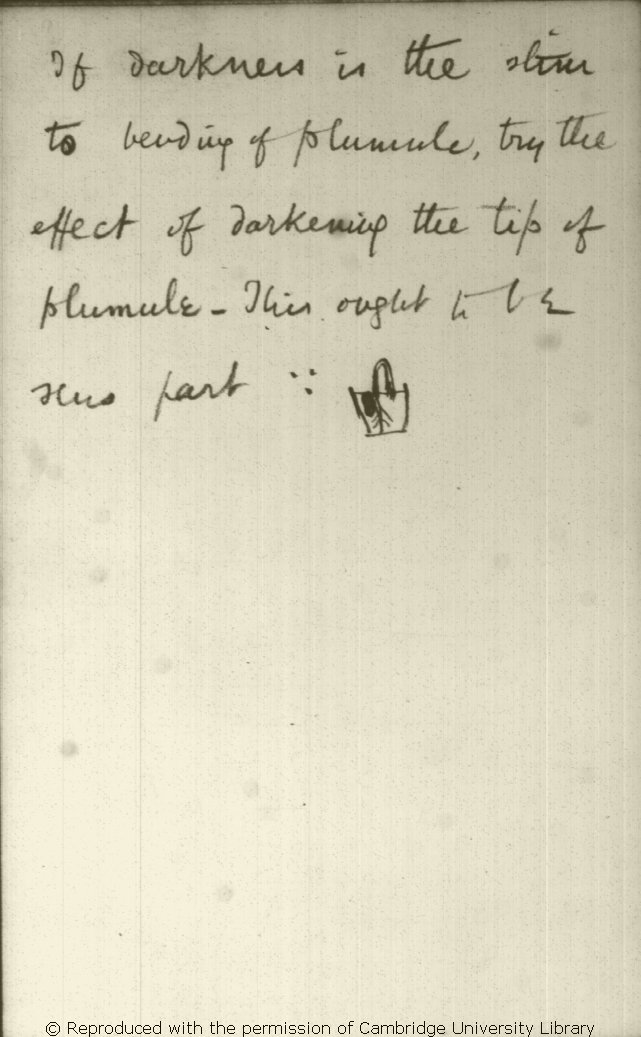 If darkness is the stim
to bending of plumule, try the
effect of darkening the tip of
plumule – This ought to be
sens part ∵
© Reproduced with the permission of Cambridge University Library